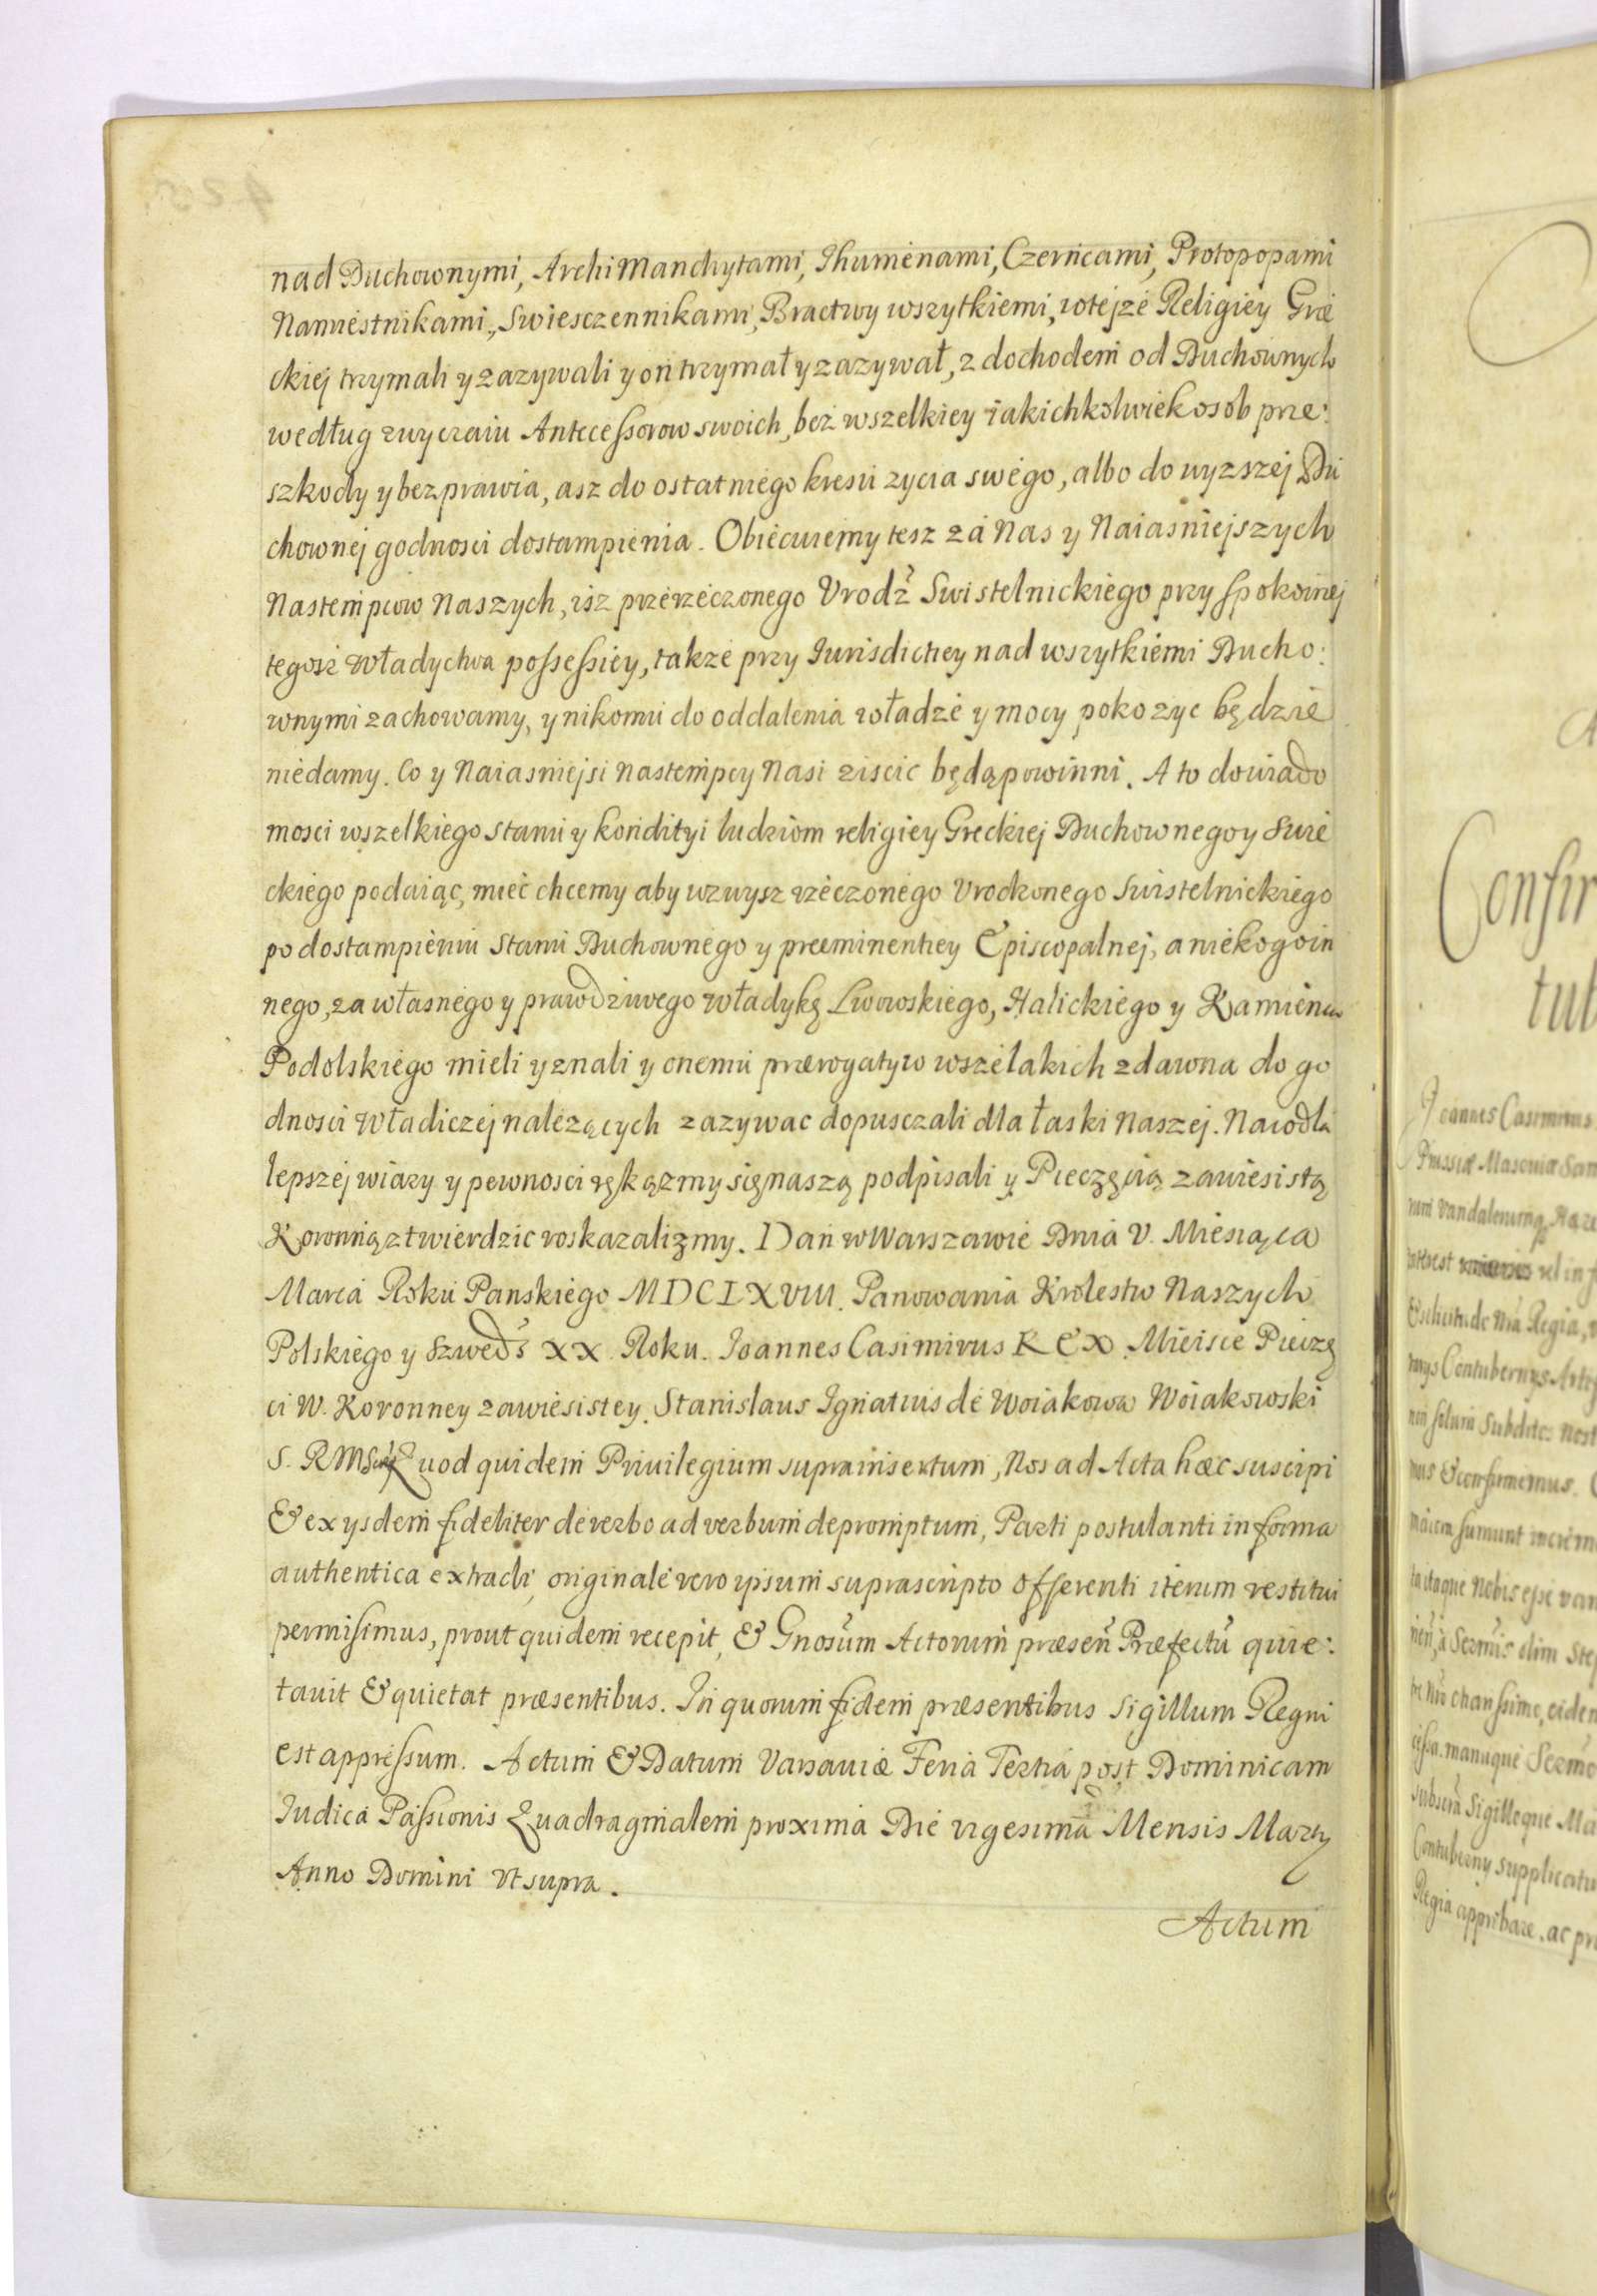 nad Duchownymi, ArchiManchytami, Ihumenami, Czerncami, Protopopami
Namiestnikami, Swiesczennikami, Bractwy wszytkiemi, wtejze Religiey Græ
ckiej trzymali y zazywali y on trzymał y zazywał, z dochodem od Duchownych
według zwyczaiu Antecessorow swoich, bez wszelkiey iakichkolwiek osob prze:
szkody y bezprawia, asz do ostatniego kresu zycia swego, albo do wyzszej Du
chownej godnosci dostampienia. Obiecuiemy tesz za Nas y Naiasniejszych
Nastempcow Naszych, isz przerzeczonego Vrodź Swistelnickiego przy spokoinej
tegosz Władyctwa possessiey, takze przy Iurisdictiey nad wszytkiemi Ducho:
wnymi zachowamy, y nikomu do oddalenia władze y mocy poko zyc będzie
niedamy. Co y Naiasniejsi Nastempcy Nasi ziscic będą powinni. A to dowiado
mosci wszelkiego stanu y kondityi ludziom religiey Greckiej Duchownego y Swie
ckiego podaiąc, miec chcemy aby wzwysz rzeczonego Vrodzonego Swistelnickiego
po dostampieniu Stanu Duchownego y præeminentiey Episcopalnej, a niekogo in
nego, za własnego y prawdziwego Władykę Lwowskiego, Halickiego y Kamienca
Podolskiego mieli y znali y onemu prærogatyw wszelakich zdawna do go
dnosci Władiczej nalezących zazywac dopusczali dla łaski Naszej. Na co dla
lepszej wiary y pewnosci ręką zmy się naszą podpisali y Pieczęcią zawiesistą
Koronną ztwierdzic roskazalizmy. Dan w Warszawie Dnia V. Miesiąca
Marca Roku Panskiego MDCLXVIII. Panowania Krolestw Naszych
Polskiego y Szwedź XX. Roku. Joannes Casimirus REX. Mieisce Pieczę
ci W. Koronney zawiesistey. Stanislaus Ignatius de Woiakowa Woiakowski
S. RM Quod quidem Privilegium suprainsertum, Nos ad Acta hæc suscipi
& ex ysdem fideliter de verbo ad verbum depromptum, Parti postulanti in forma
authentica extradi, originale vero ipsum suprascripto offerenti iterum restitui
permisimus, prout quidem recepit, & Gnosum Actorum præsen Præfectū quie:
tauit & quietat præsentibus. In quorum fidem præsentibus Sigillum Regni
est appressum. Actum & Datum Varsauiæ Feria Tertia post Dominicam
Iudica Passionis Quadragmalem proxima Die vigesima Mensis Marty
Anno Domini Vt supra.
Actum
Confir
tub
Joannes Casimirus
Prussiæ Masouiæ Sam